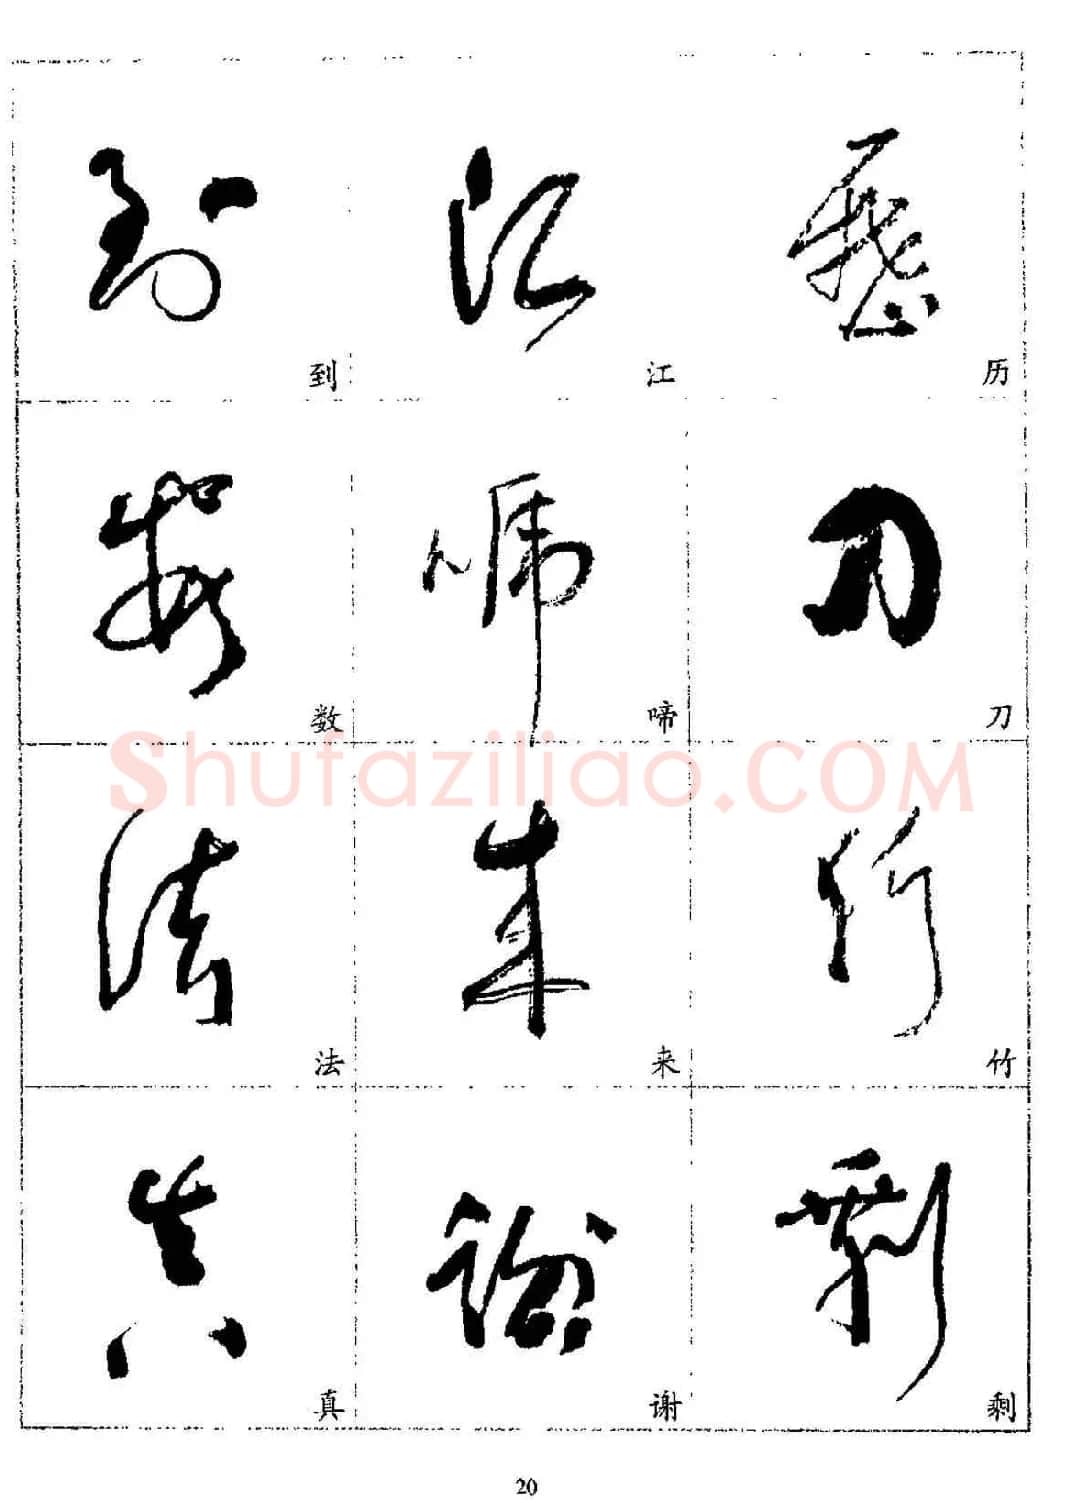 到 江 历
数 啼 刀
Shufaziliao.COM
法 来 竹
真 谢 剩
20